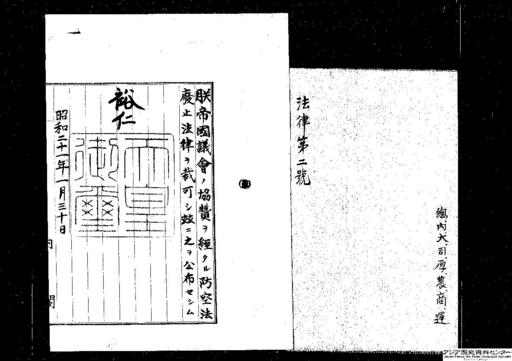 法律第二號
總内大司厚農商運
朕帝國議會ノ協賛ヲ經タル防空法
廢止法律ヲ裁可シ玆ニ之ヲ公布セシム
裕仁
天皇御璽
昭和二十一年一月三十日
内閣
アジア歴史資料センター